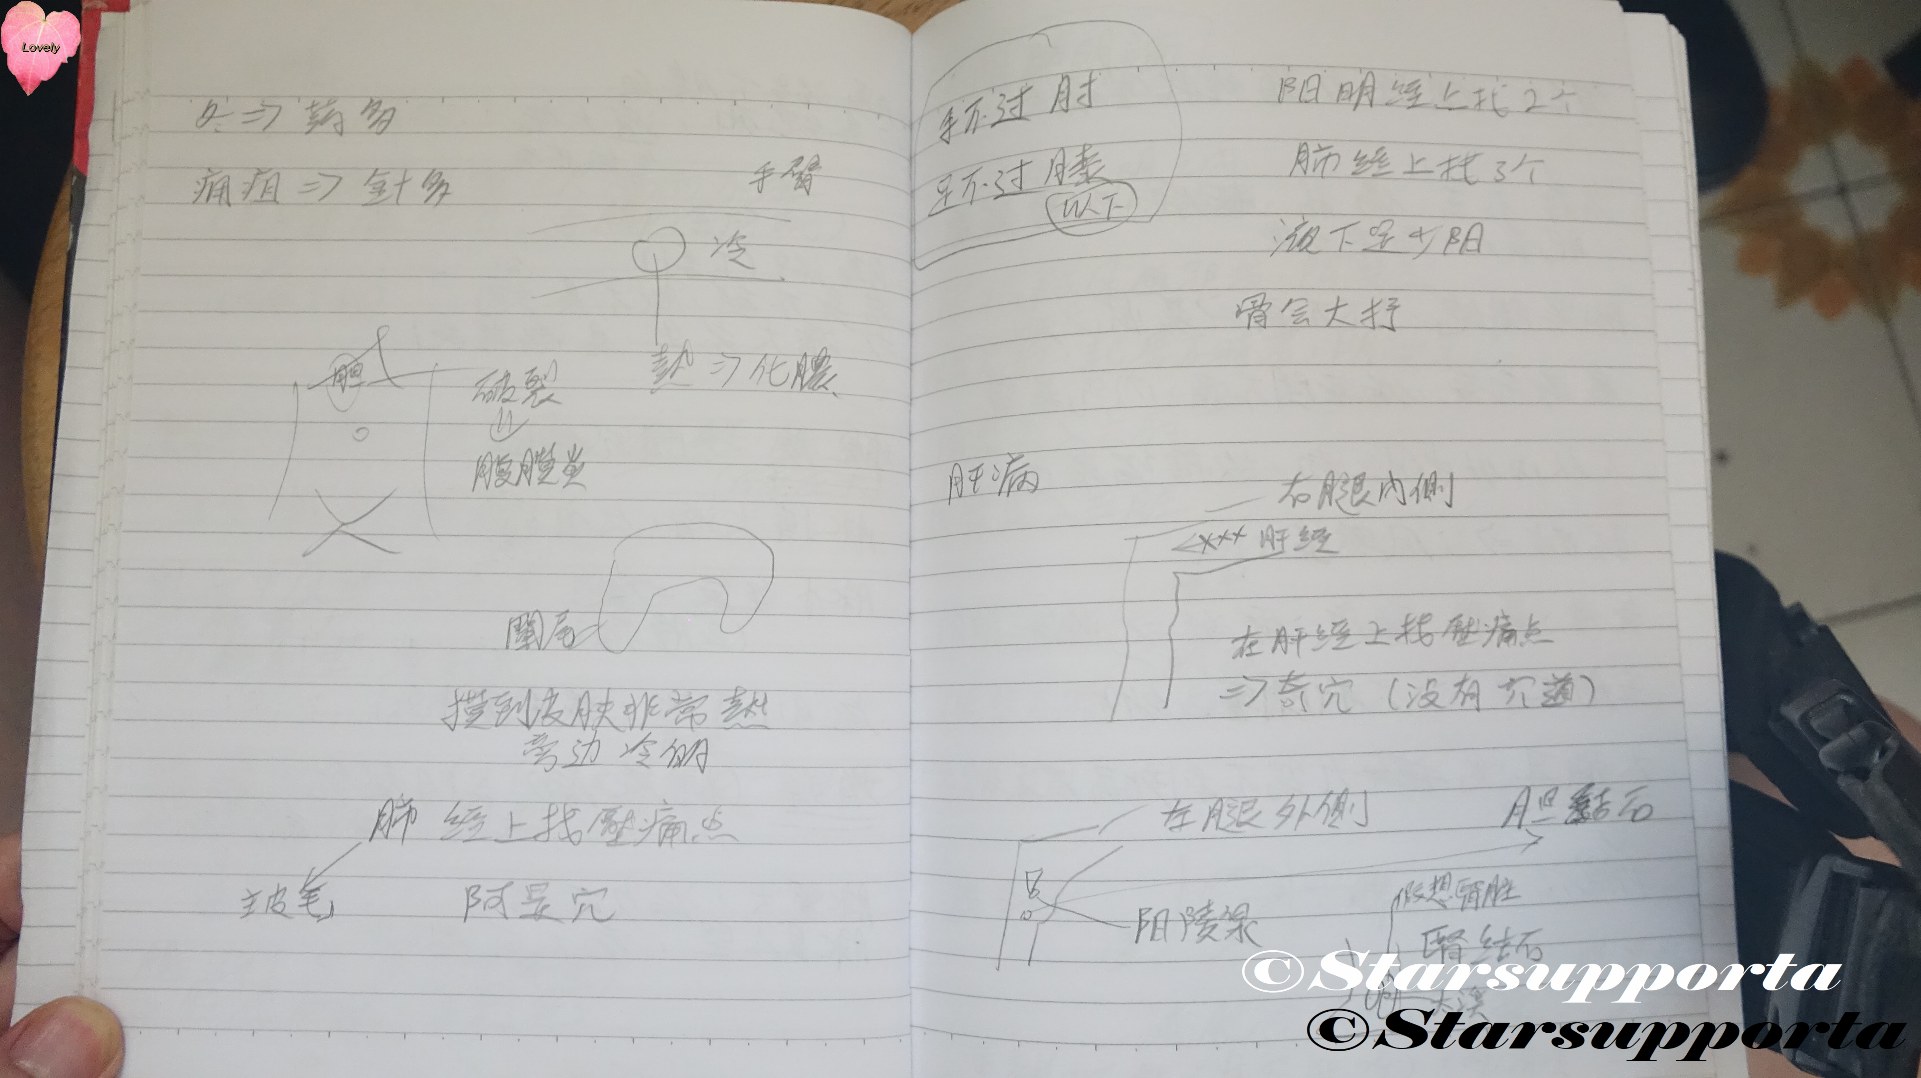 Lovely
冬⇒药多
痛疽⇒針多
手臂
冷
熱⇒化膿
胆
破裂
⇓
腹膜炎
闌尾
摸到皮肤非常熱
旁边冷的
肺 经上找壓痛点
主皮毛
阿是穴
手不过肘
足不过膝
以下
阳明经上找2个
肺经上找3个
液下是少阴
骨会大抒
肝病
右腿内侧
xxx 肝经
在肝经上找壓痛点
⇒奇穴(没有穴道)
左腿外侧
胆結石
阳陵泉
假想腎脏
腎结石
太溪
©Starsupporta
©Starsupporta